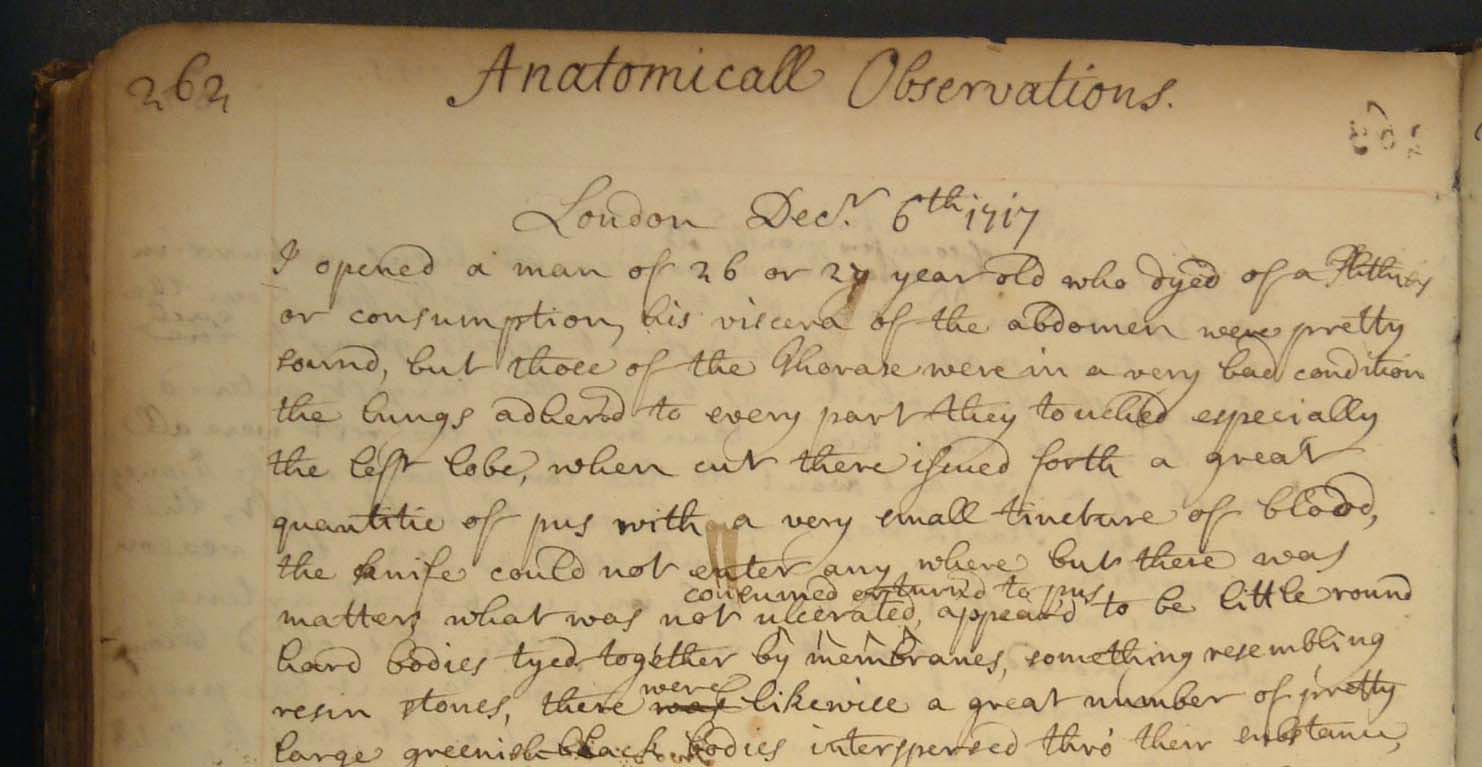 262
Anatomicall Observations.
London Decr. 6th 1717
I opened a man of 26 or 27 year old who dyed of a Phthisis
or consumption, his viscera of the abdomen were pretty
sound, but those of the Thorax were in a very bad condition
the lungs adher'd to every part they touched especially
the left lobe, when cut there issued forth a great
quantitie of pus with a very small tincture of blood,
the knife could not enter any where but there was
consumed or turn'd to pus
matter, what was not ulcerated, appear'd to be little round
hard bodies tyed together by membranes, something resembling
resin stones, there were was likewise a great number of pretty
large greenish black bodies interspersed thro' their substance,